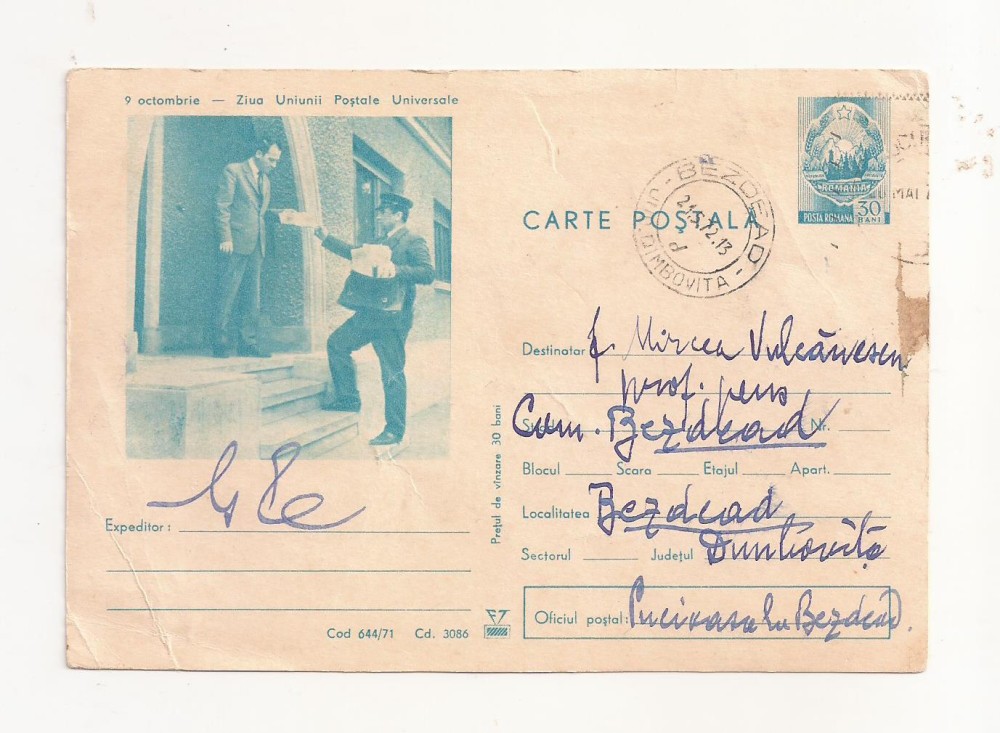 9 octombrie — Ziua Uniunii Poștale Universale
ROMANIA
POSTA ROMANA 30 BANI
MAI
CARTE POȘTALĂ
BEZDEAD
21.5.72.13
d
JUD. DIMBOVITA
Destinatar f. Mircea Vulcănescu
prof. pens
Com. Bezdead Nr.
Blocul Scara Etajul Apart.
Localitatea Bezdead
Sectorul Județul Dâmbovița
Oficiul poștal: Bezdead.
Expeditor:
Prețul de vînzare 30 bani
Cod 644/71 Cd. 3086